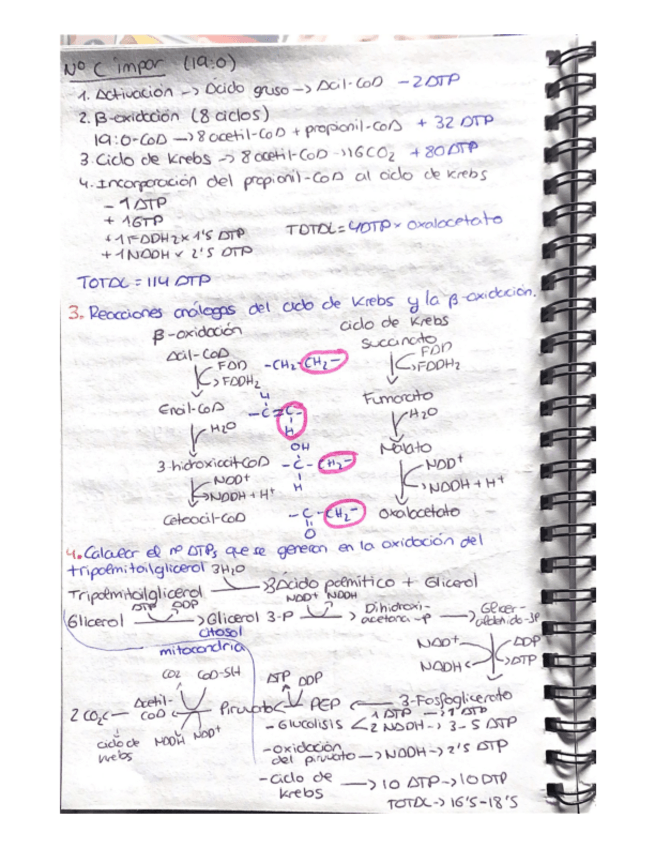 Nº C impar (19:0)
1. Activación -> Ácido graso -> Acil-CoA - 2ATP
2. β-oxidación (8 ciclos)
19:0-CoA -> 8 acetil-CoA + propionil-CoA + 32 ATP
3 Ciclo de Krebs -> 8 acetil-CoA -> 16CO2 + 80 ATP
4. Incorporación del propionil-CoA al ciclo de Krebs
- 1 ATP
+ 1GTP
+ 1FADH2 x 1'5 ATP
+ 1NADH x 2'5 ATP
TOTAL = 4ATP x oxalacetato
TOTAL = 114 ATP
3. Reacciones análogas del ciclo de Krebs y la β-oxidación.
β-oxidación
ciclo de Krebs
Acil-CoA
FAD
FADH2
-CH2-CH2-
succinato
FAD
FADH2
Enoil-CoA
H
-C=C-
H
Fumarato
H2O
H2O
3-hidroxiacil-CoA
OH
-C-CH2-
H
Malato
NAD+
NADH + H+
NAD+
NADH + H+
Cetoacil-CoA
-C-CH2-
O
Oxalacetato
4. Calcular el nº ATPs que se generan en la oxidación del
tripalmitoilglicerol
3H2O
Tripalmitoilglicerol -> 3Ácido palmítico + Glicerol
ATP ADP
NAD+ NADH
Glicerol -> Glicerol 3-P -> Dihidroxi-acetona-P -> Glicer-aldehido-3P
citosol
mitocondria
NAD+
NADH
ADP
ATP
CO2 CoA-SH
ATP ADP
2 CO2 <- Acetil-CoA <- Piruvato <- PEP <- 3-Fosfoglicerato
ciclo de Krebs
NADH NAD+
- Glucolisis
1 ATP -> 1 ATP
2 NADH -> 3-5 ATP
- oxidación del piruvato -> NADH -> 2'5 ATP
- Ciclo de Krebs -> 10 ATP -> 10 ATP
TOTAL -> 16'5-18'5